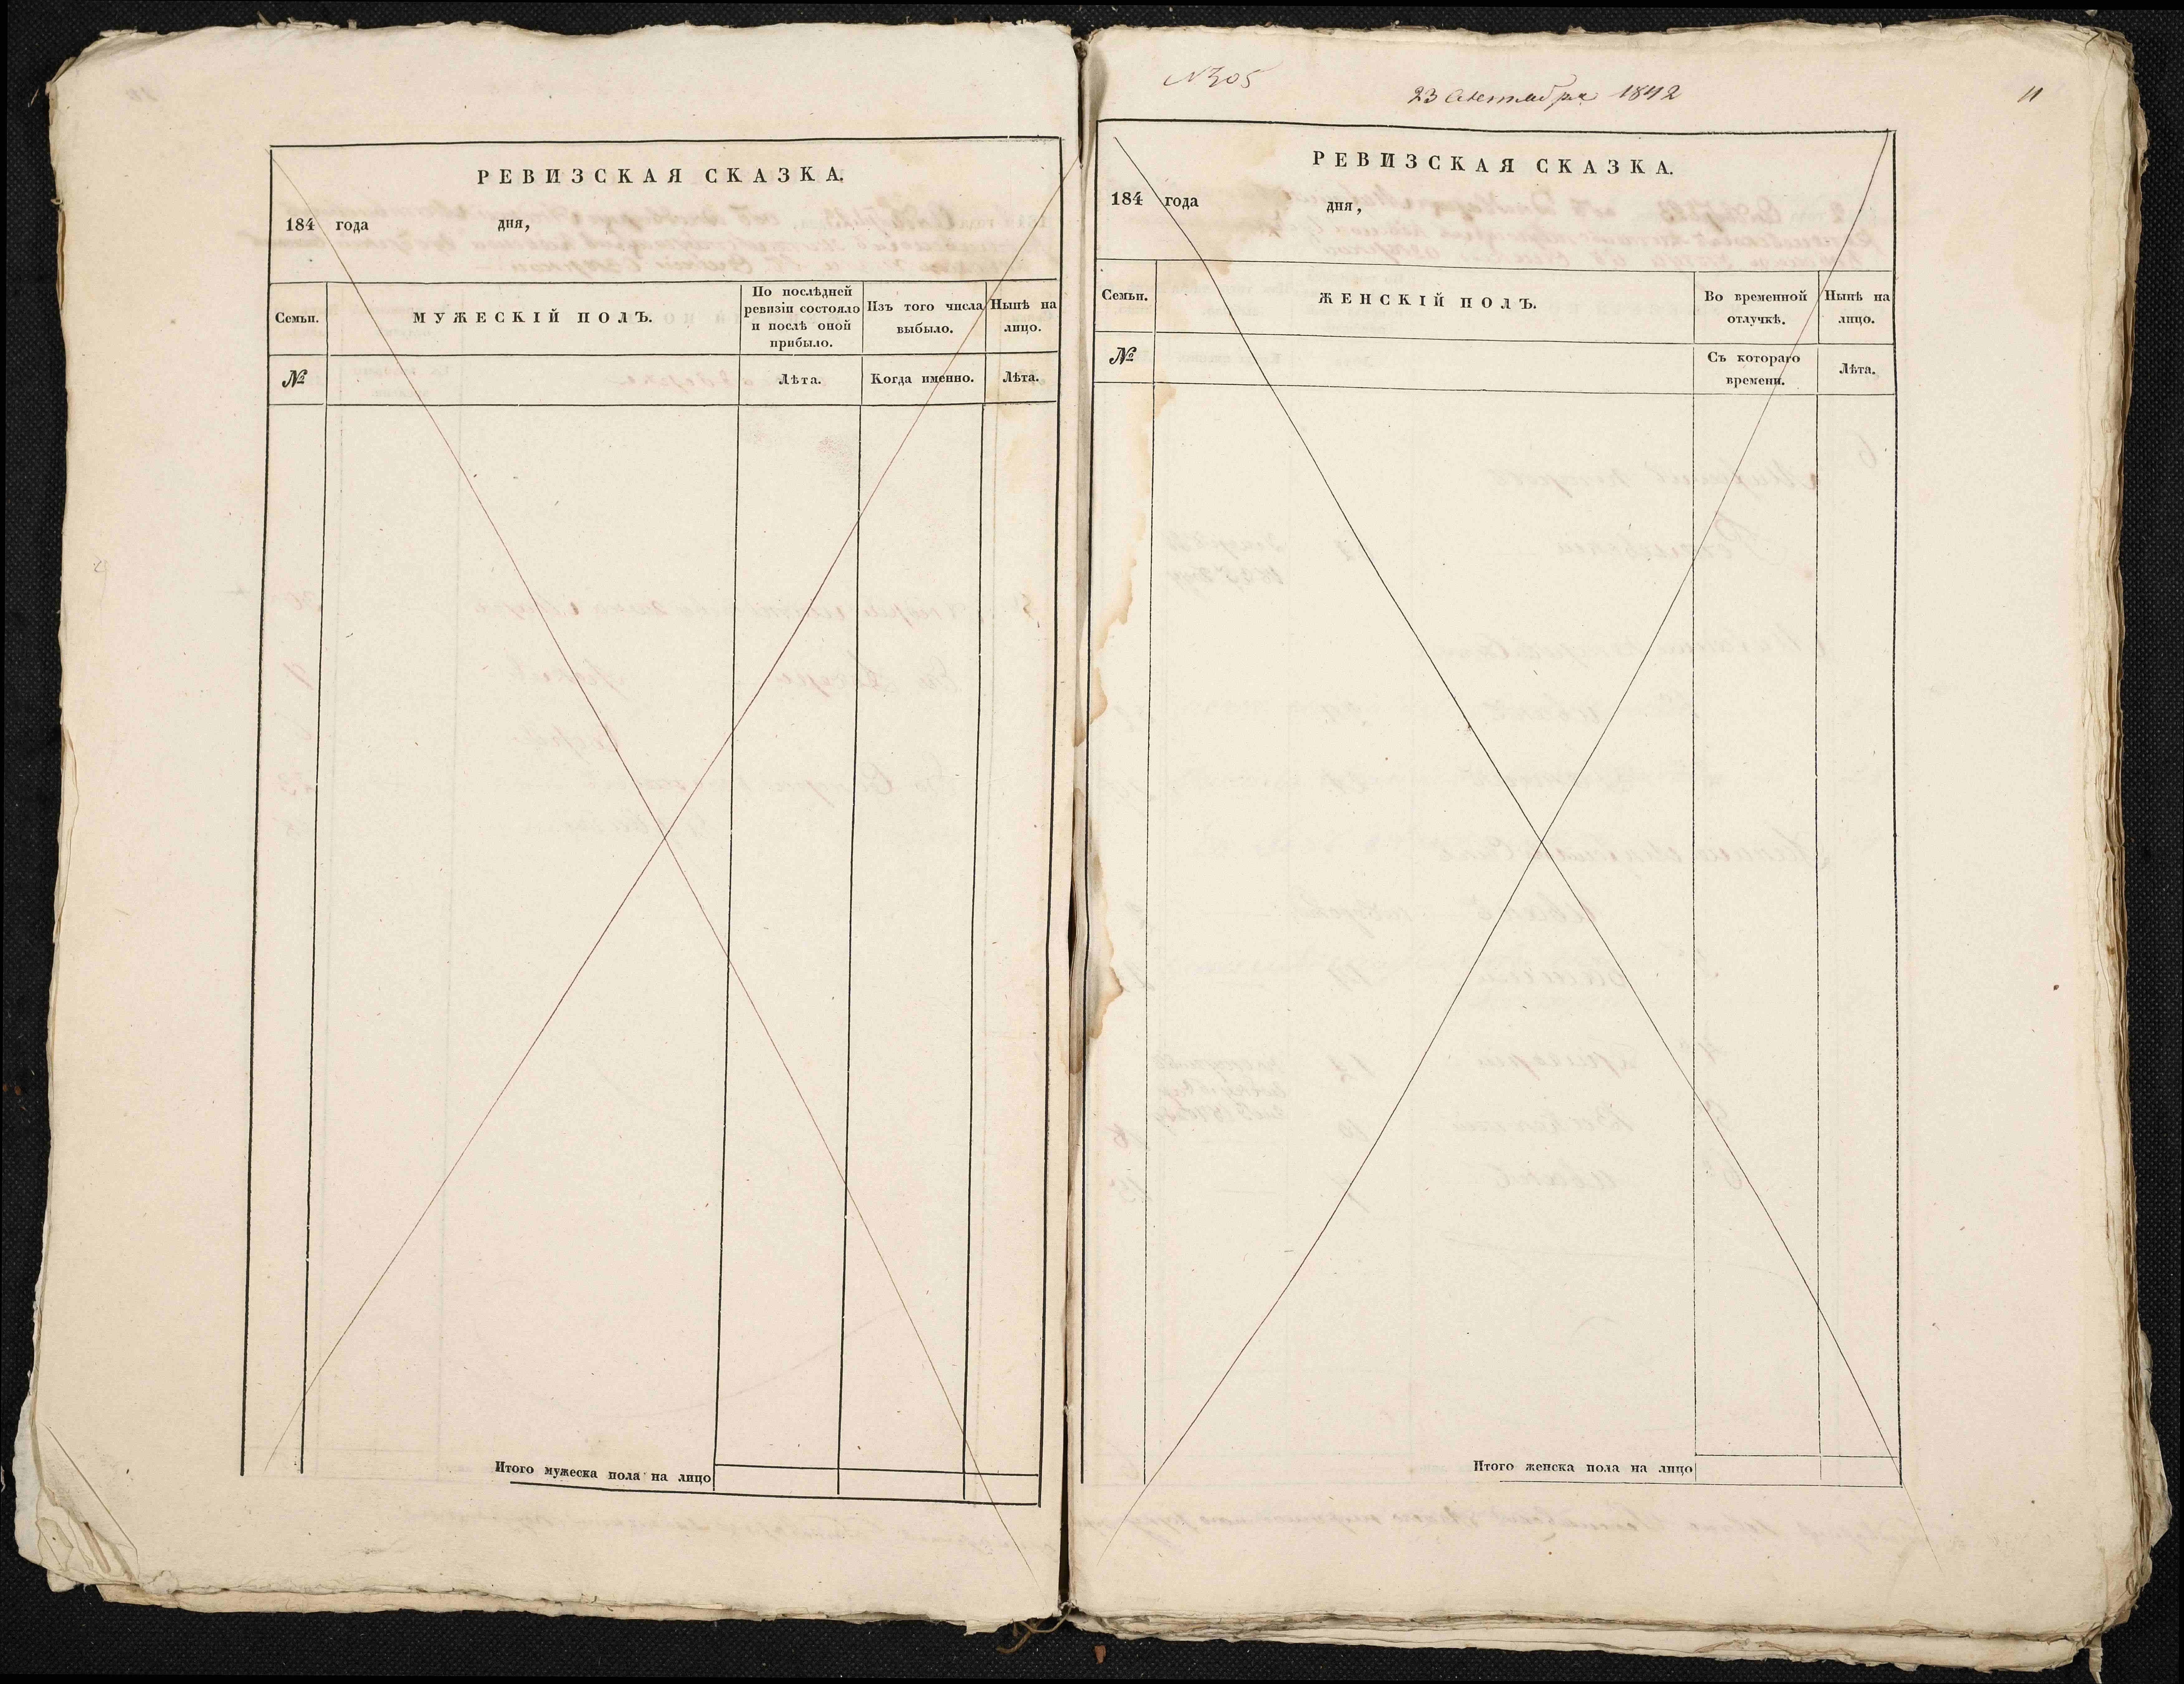 РЕВИЗСКАЯ СКАЗКА.
184 года дня,
Семьи. МУЖЕСКІЙ ПОЛЪ. По послѣдней ревизіи состояло и послѣ оной прибыло. Изъ того числа выбыло. Нынѣ на лицо.
№ Лѣта. Когда именно. Лѣта.
Итого мужеска пола на лицо
N 305
23 Сентября 1842
11
РЕВИЗСКАЯ СКАЗКА.
184 года дня,
Семьи. ЖЕНСКІЙ ПОЛЪ. Во временной отлучкѣ. Нынѣ на лицо.
№ Съ котораго времени. Лѣта.
Итого женска пола на лицо